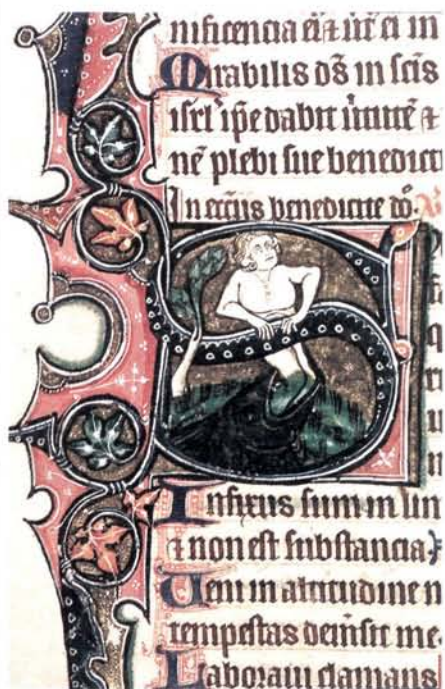 nificencia ei ⁊ uirt ei in
Mirabilis ds̄ in sc̄is
isrl̄ ip̄e dabit uirtutē ⁊
nē plebi sue benedict
In ecc̄iis benedicite dō.
Infixus sum in lim
⁊ non est substancia
Ueni in altitudinem
tempestas dem̄sit me
Laboraui clamans